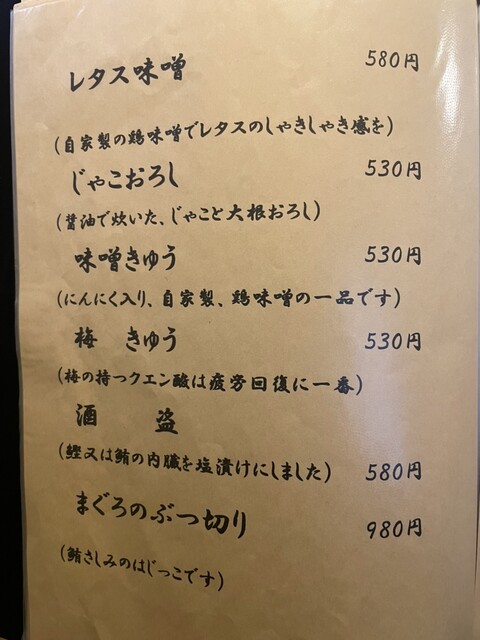 レタス味噌 580円
(自家製の鶏味噌でレタスのしゃきしゃき感を)
じゃこおろし 530円
(醤油で炊いた、じゃこと大根おろし)
味噌きゅう 530円
(にんにく入り、自家製、鶏味噌の一品です)
梅 きゅう 530円
(梅の持つクエン酸は疲労回復に一番)
酒 盗
(鰹又は鮪の内臓を塩漬けにしました) 580円
まぐろのぶつ切り 980円
(鮪さしみのはじっこです)